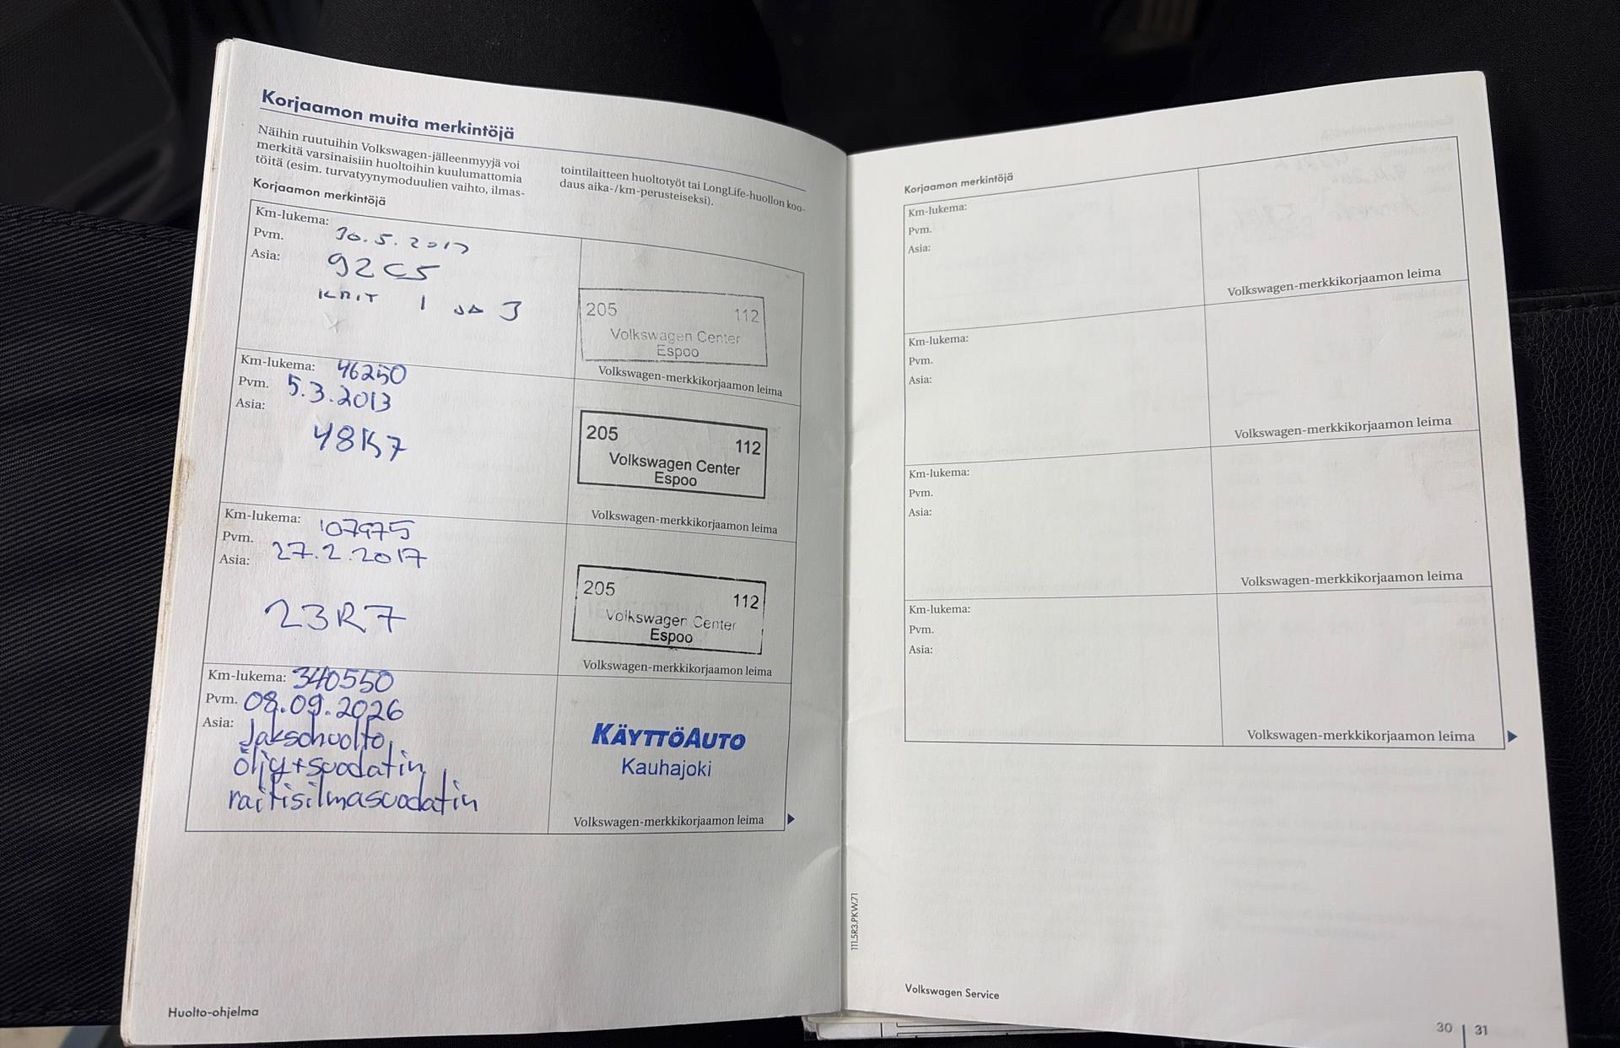 Korjaamon muita merkintöjä
Näihin ruutuihin Volkswagen-jälleenmyyjä voi
merkitä varsinaisiin huoltoihin kuulumattomia
töitä (esim. turvatyynymoduulien vaihto, ilmas-
tointilaitteen huoltotyöt tai LongLife-huollon koo-
daus aika-/km-perusteiseksi).
Korjaamon merkintöjä
Km-lukema:
Pvm. 30.5.2017
Asia: 92C5
KRIT 1 JA 3
205 112
Volkswagen Center
Espoo
Volkswagen-merkkikorjaamon leima
Km-lukema: 46250
Pvm. 5.3.2013
Asia:
48K7
205 112
Volkswagen Center
Espoo
Volkswagen-merkkikorjaamon leima
Km-lukema: 107975
Pvm. 27.2.2017
Asia:
23R7
205 112
Volkswagen Center
Espoo
Volkswagen-merkkikorjaamon leima
Km-lukema: 340550
Pvm. 08.09.2026
Asia: Jaksohuolto,
öljy+suodatin,
raitisilmasuodatin
KÄYTTÖAUTO
Kauhajoki
Volkswagen-merkkikorjaamon leima
Huolto-ohjelma
111.5R3.PKW.71
Korjaamon merkintöjä
Km-lukema:
Pvm.
Asia:
Volkswagen-merkkikorjaamon leima
Km-lukema:
Pvm.
Asia:
Volkswagen-merkkikorjaamon leima
Km-lukema:
Pvm.
Asia:
Volkswagen-merkkikorjaamon leima
Km-lukema:
Pvm.
Asia:
Volkswagen-merkkikorjaamon leima
Volkswagen Service
30 | 31